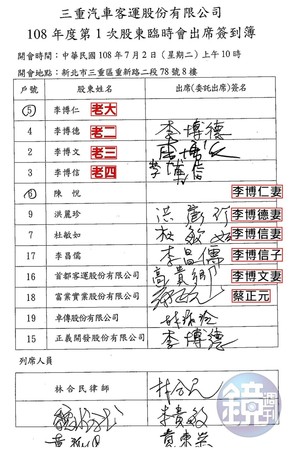 三重汽車客運股份有限公司
108 年度第 1 次股東臨時會出席簽到簿
開會時間：中華民國 108 年 7 月 2 日（星期二）上午 10 時
開會地點：新北市三重區重新路二段 78 號 8 樓
戶號 股東姓名 出席(委託出席)簽名
5 李博仁 老大
4 李博德 老二 李博德
2 李博文 老三 李博文
3 李博信 老四 李博信
6 陳悅 李博仁妻
9 洪麗珍 洪麗珍 李博德妻
7 杜敏如 杜敏如 李博信妻
17 李昌儒 李昌儒 李博信子
16 首都客運股份有限公司 李博文妻
18 富業實業股份有限公司 蔡正元
19 阜傳股份有限公司
15 正義開發股份有限公司 李博德
列席人員
林合民律師 林合民
鏡週刊